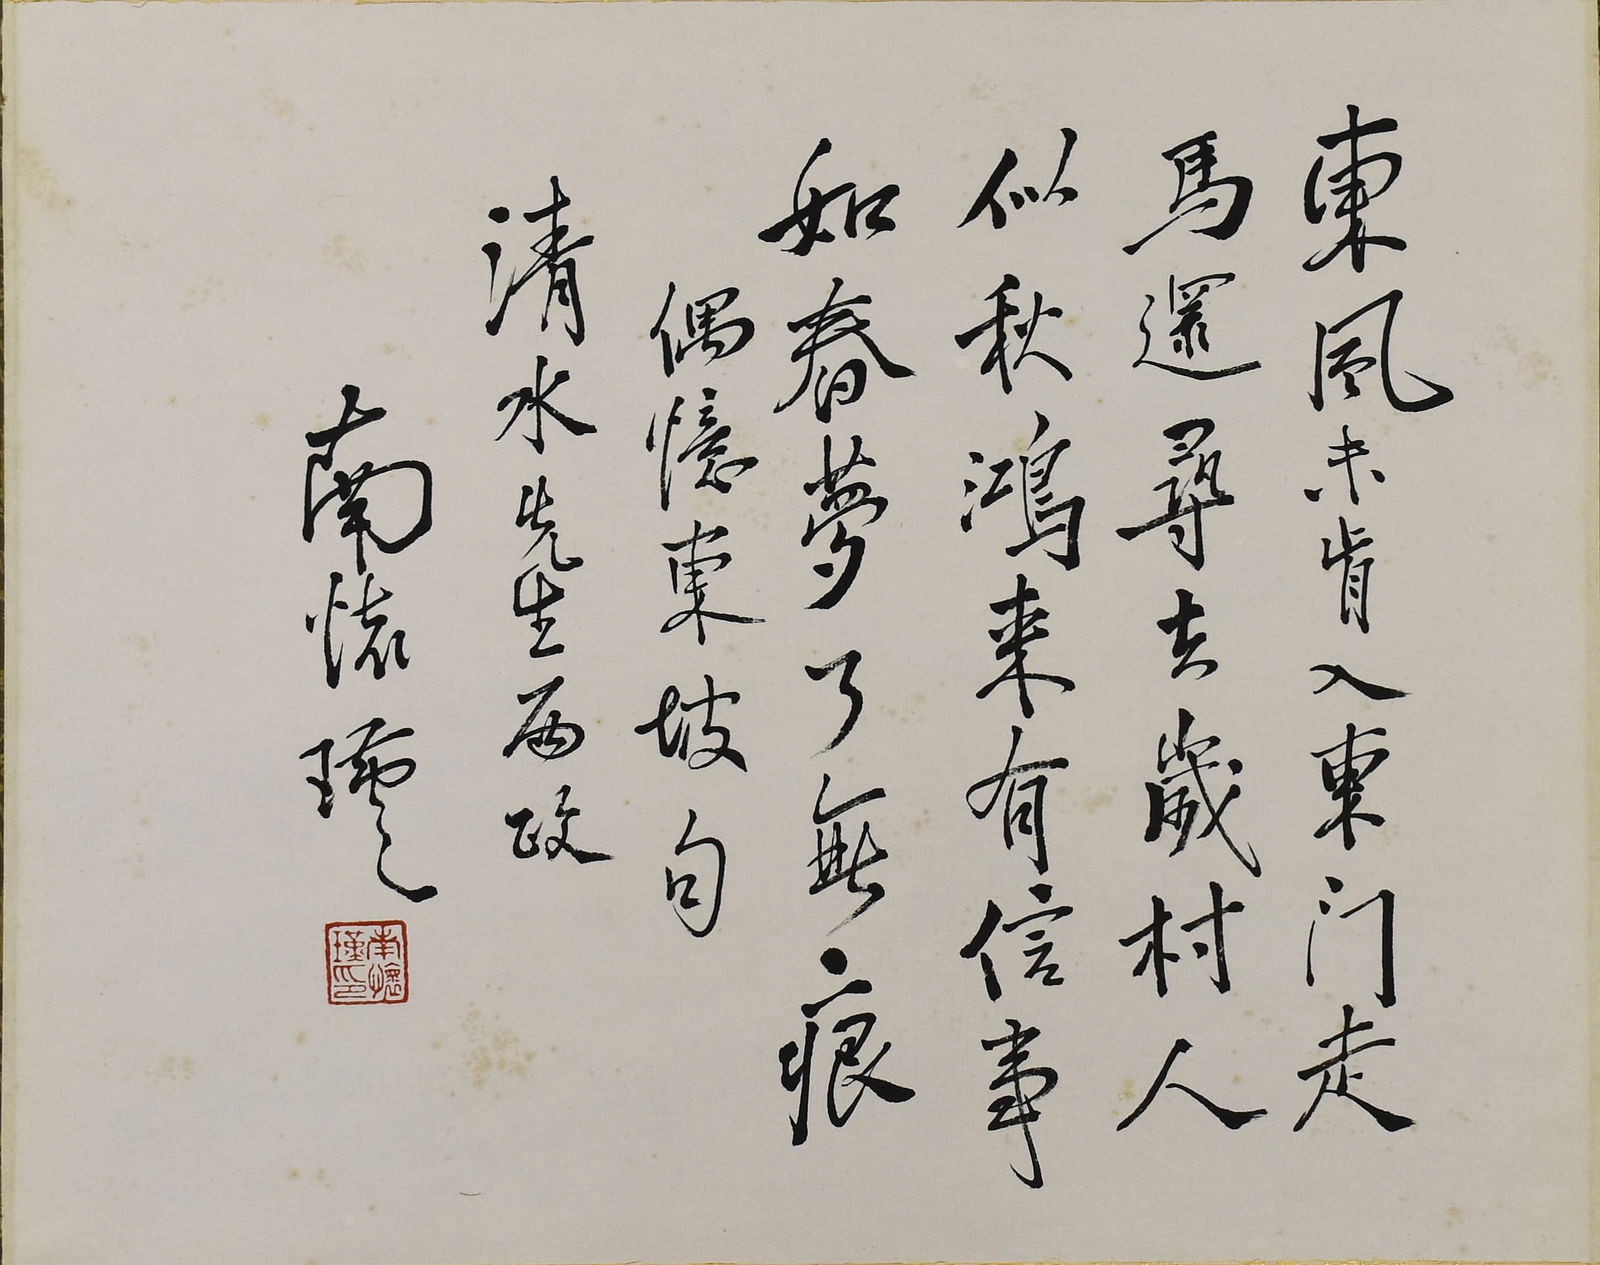 東風未肯入東门走
馬還尋去歲村人
似秋鴻来有信事
如春夢了無痕
偶憶東坡句
清水先生两政
南懷瑾
南懷
瑾印